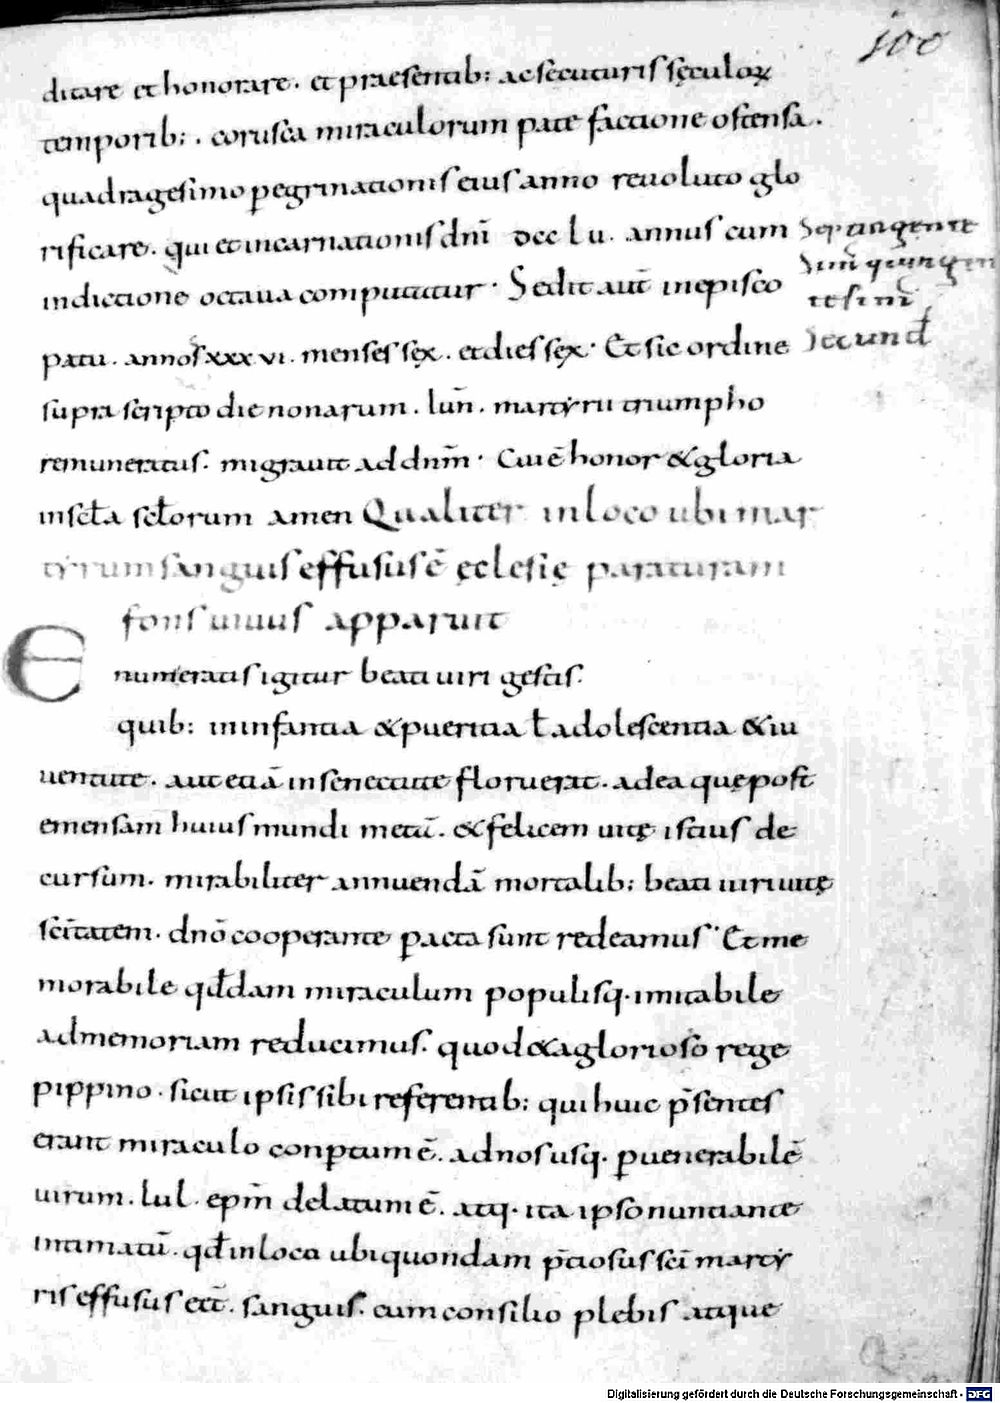 100
ditare et honorare. et praesentib: ac secuturis sęculoꝝ
temporib:. corusca miraculorum pate factione ostensa.
quadragesimo peꝛgrinationis eius anno reuoluto glo
rificare. qui et incarnationis dn̄i dcclu. annus cum
indictione octaua computatur· Sedit aut̄ inepisco
patu. annos xxxvi. menses sęx. et dies sęx· Et sic ordine
Septingente
simꝰ quinquagen
tesimꝰ
secund
supra scripto die nonarum. Iun̄. martyrii triumpho
remuneratus. migrauit ad dnm̄· Cui ē honor & gloria
in scła scłorum amen Qualiter in loco ubi mar
tyrum sanguis effusus ē ęclesię paraturam
fons uiuus apparuit
Enumeratis igitur beati uiri gestis.
quib: in infantia & pueritia ł adolescentia & iu
uentute. aut etiā in senectute floruerat. ad ea quę post
emensam huius mundi metā. & felicem uitę istius de
cursum. mirabiliter annuendā mortalib: beati uiri uitę
sc̄itatem. dnō cooperante ꝑacta sunt redeamus· Et me
morabile qđdam miraculum populisq· imitabile
ad memoriam reducimus. quod & a glorioso rege
pippino. sicut ipsis sibi referentib: qui huic p̄sentes
erant miraculo conꝑtum ē. ad nos usq. ꝑ uenerabilē
uirum. lul. epm̄ delatum ē. atq· ita ipso nuntiante
intimatū. qđ in loco ubi quondam p̄tiosus sc̄i marty
ris effusus est. sanguis. cum consilio plebis atque